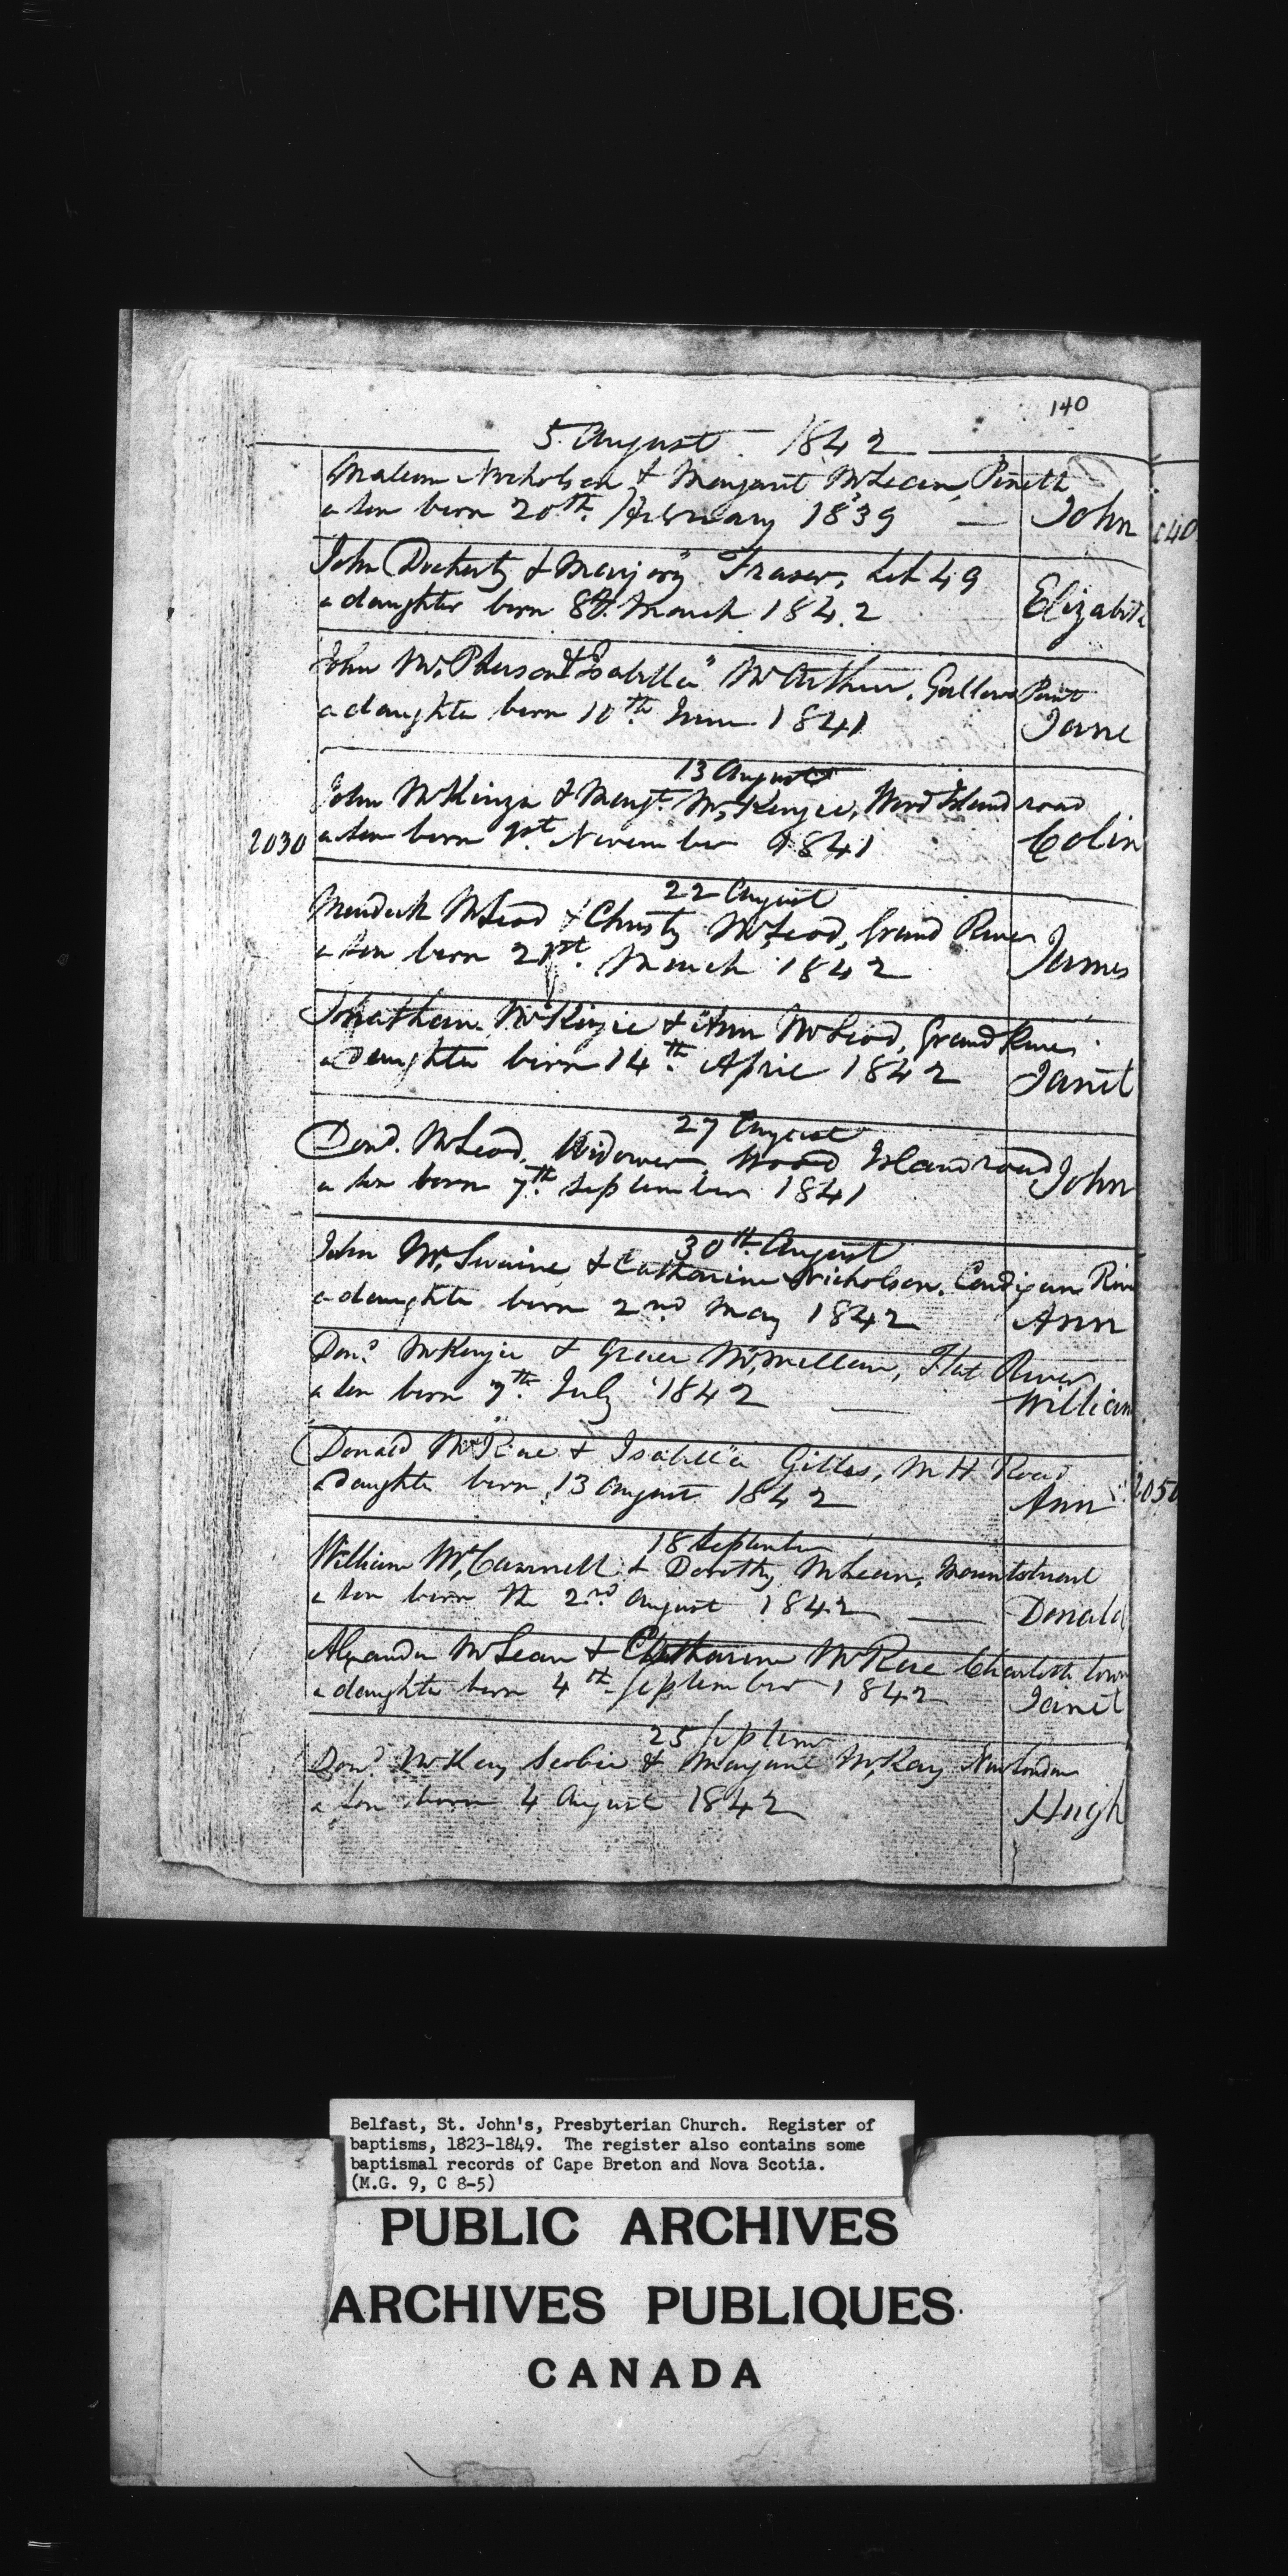 140
5 August 1842
Malcom Nicholson & Margaret McLean, Pinette
a son born 20th February 1839 — John
John Docherty & Marjory Fraser, Lot 49
a daughter born 8th March 1842 Elizabeth
John McPherson & Isabella McArthur, Gallows Point
a daughter born 10th June 1841 Jane
13 August
John McKinzie & Margt McKenzie, Wood Island road
2030 a son born 1st November 1841 Colin
22 August
Murdoch McLeod & Christy McLeod, Grand River
a son born 21st March 1842 James
Jonathan McKinzie & Ann McLeod, Grand River
a Daughter born 14th April 1842 Janet
27 August
Dond. McLeod, Widower, Wood Island road
a son born 7th September 1841 John
30th August
John McSwaine & Catharine Nicholson, Cardigan River
a daughter born 2nd May 1842 Ann
Dond McKenzie & Grace McMillan, Flat River
a son born 7th July 1842 — William
Donald McRae & Isabella Gillis, M H Road
a Daughter born 13 August 1842 Ann
2050
18 September
William McCannell & Dorothy McLean,
a son born the 2nd August 1842 — Donald
Alexander McLean & Catharine McRae Charlotte town
a daughter born 4th September 1842 Janet
25 Septem
Dond McKay & McKay New London
a son born 4 August 1842 Hugh
Belfast, St. John's, Presbyterian Church. Register of
baptisms, 1823-1849. The register also contains some
baptismal records of Cape Breton and Nova Scotia.
(M.G. 9, C 8-5)
PUBLIC ARCHIVES
ARCHIVES PUBLIQUES
CANADA